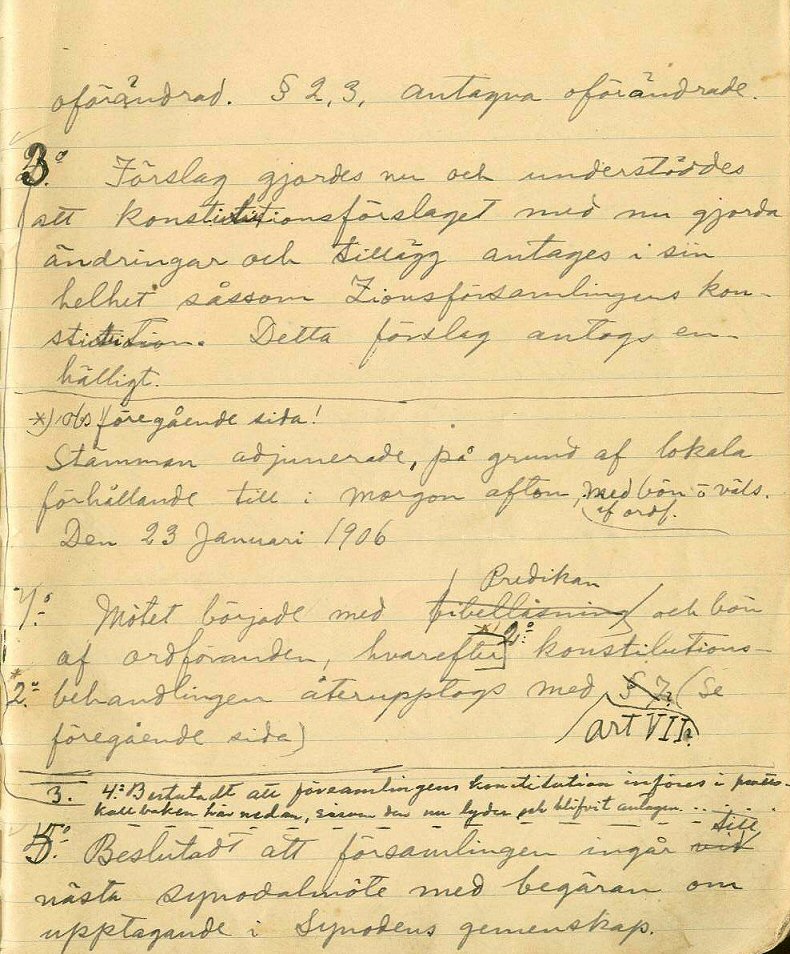 oförändrad. § 2, 3, antagna oförändrade.
3º. Förslag gjordes nu och understöddes
att konstitutionsförslaget med nu gjorda
ändringar och tillägg antages i sin
helhet såssom Zionsförsamlingens kon-
stitution. Detta förslag antogs en-
hälligt.
*) obs föregående sida!
Stämman adjunerade, på grund af lokala
förhållande till i morgon afton, med bön o väls.
af ordf.
Den 23 Januari 1906
Predikan
1º. Mötet började med bibelläsning och bön
af ordföranden, hvarefter *) 2º. konstitutions-
*2º. behandlingen återupptogs med § 7. (Se
föregående sida) art VII.
3. 4º. Beslutadt att församlingens konstitution införes i proto-
kollboken här nedan, såsom den nu lyder och blifvit antagen.....
till
5º. Beslutadt att församlingen ingår vid
nästa synodalmöte med begäran om
upptagande i Synodens gemenskap.